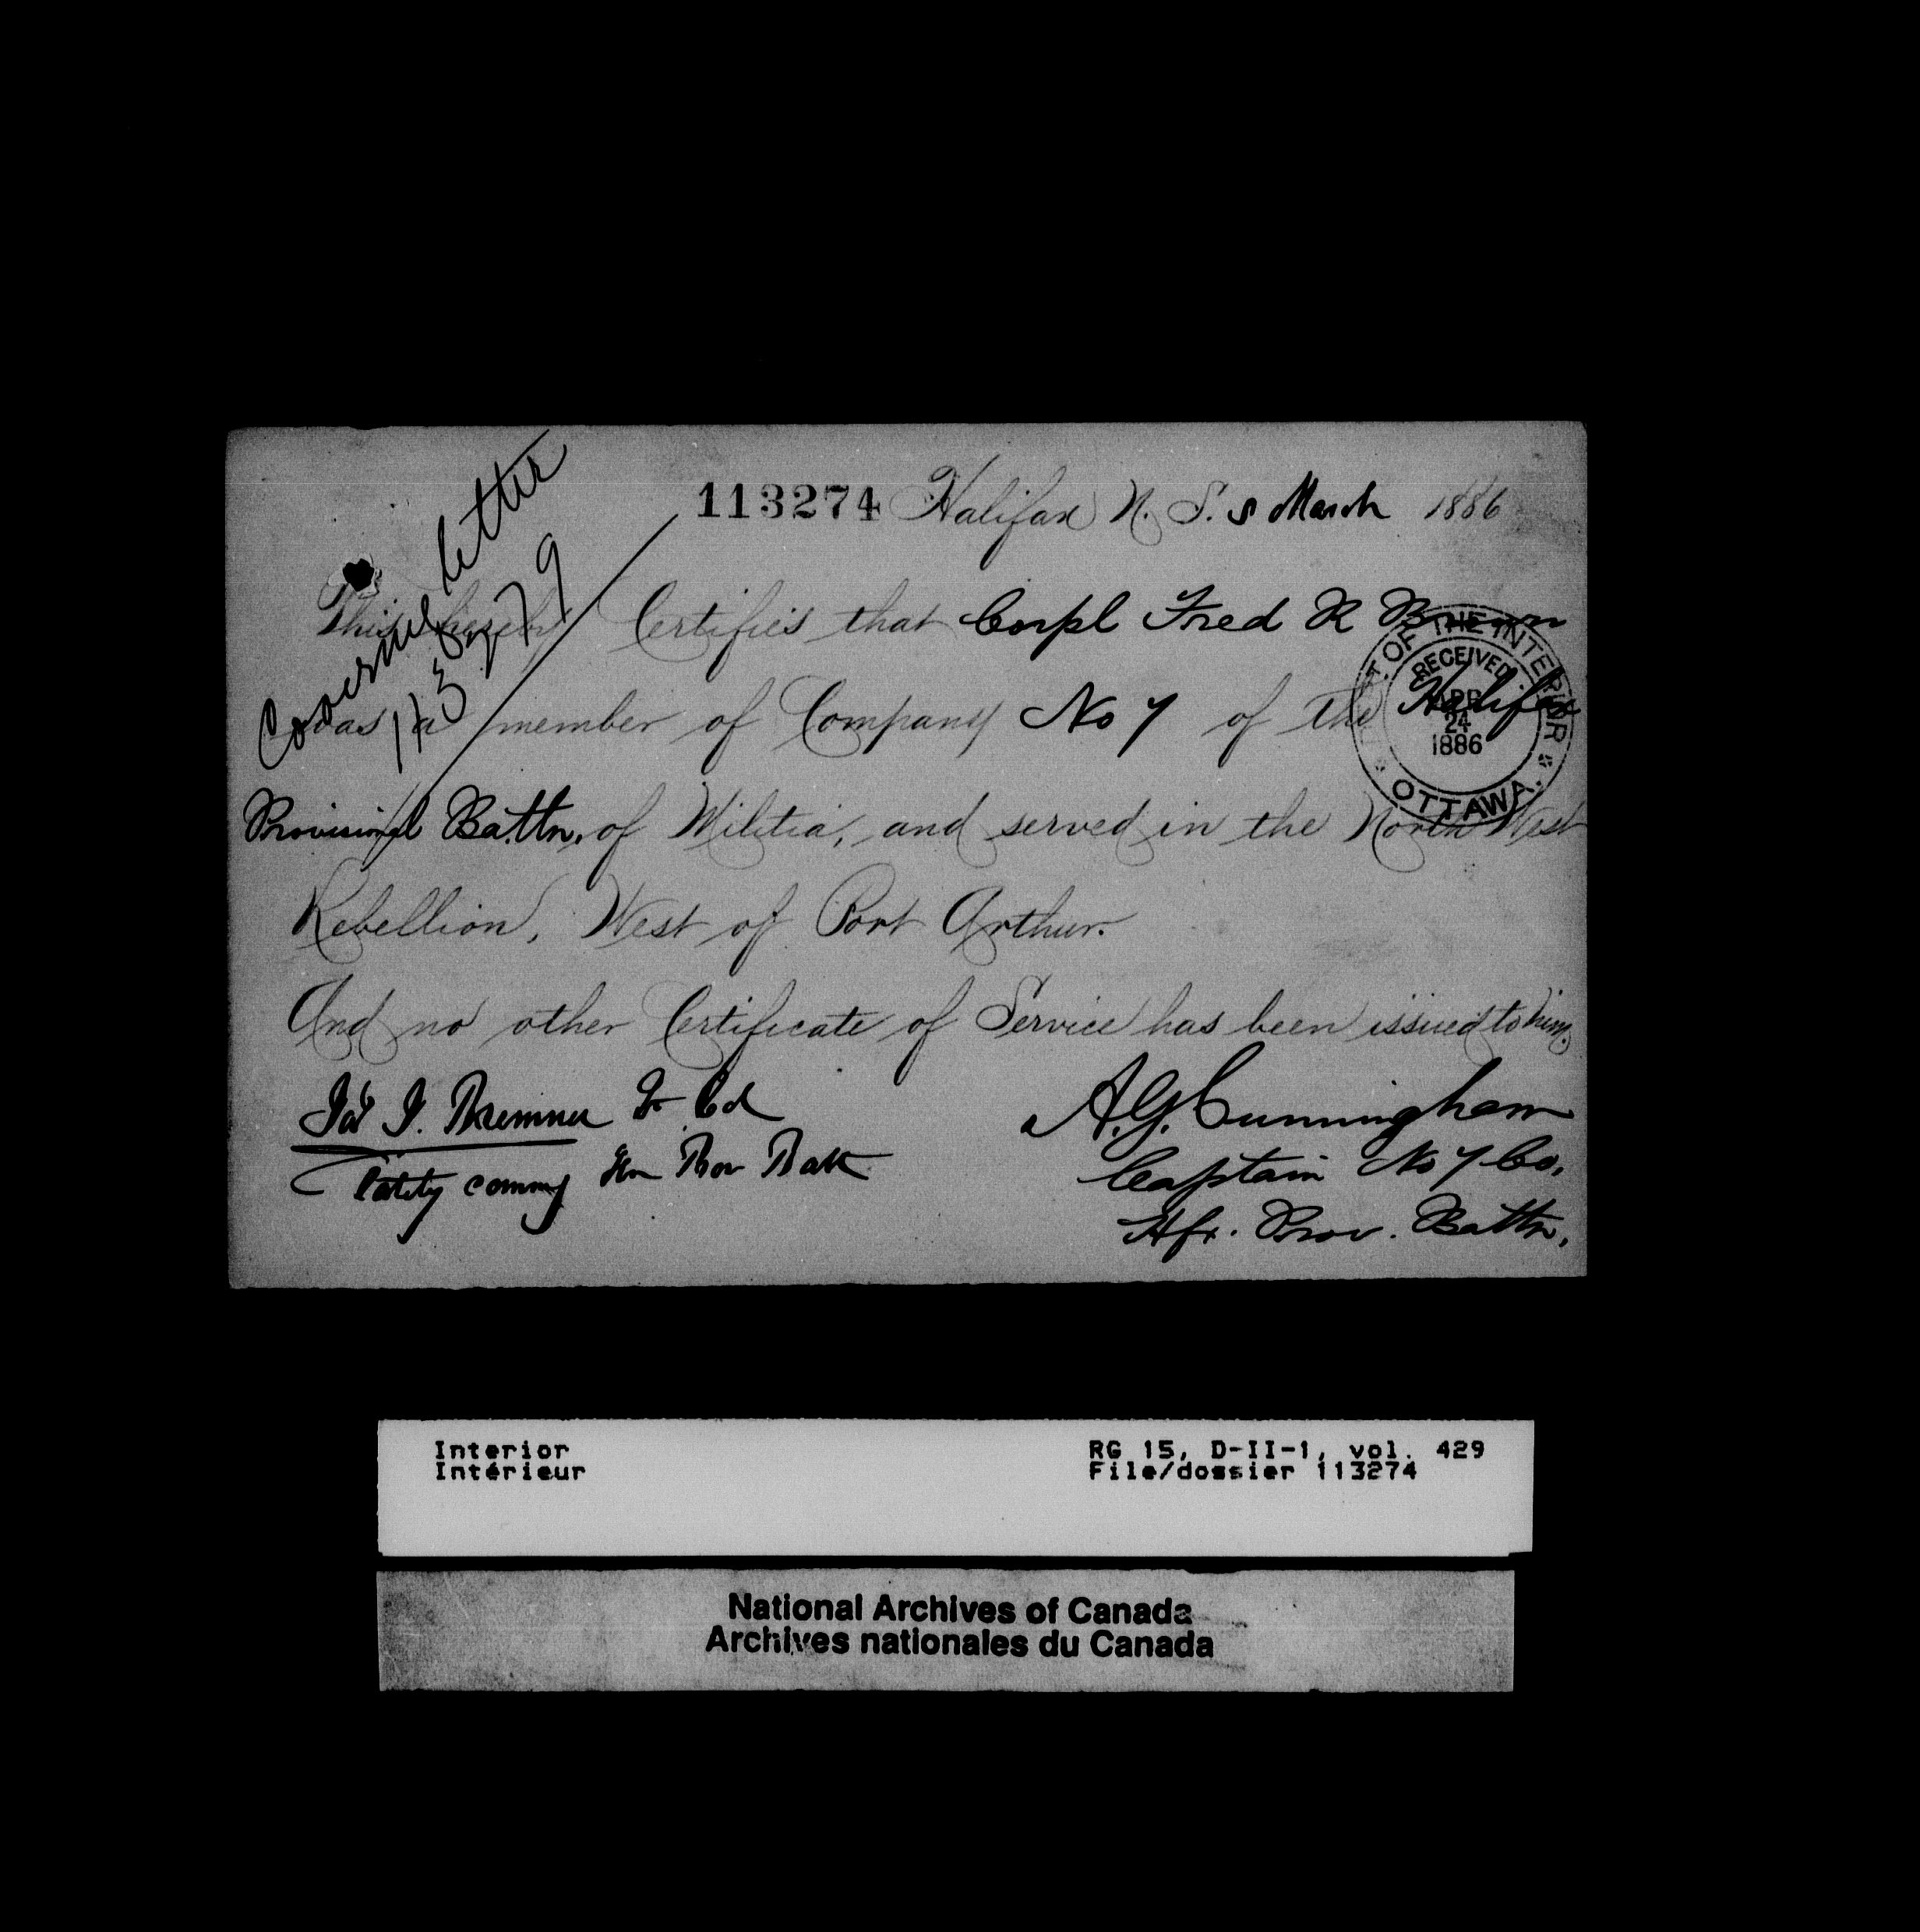 Covering letter
113279
113274 Halifax N. S. 8 March 1886
This hereby Certifies that Corpl Fred R Brown
was a member of Company No 7 of the Halifax
Provisional Battn. of Militia, and served in the North West
Rebellion, West of Port Arthur.
And no other Certificate of Service has been issued to him.
DEPT. OF THE INTERIOR
RECEIVED.
APR
24
1886
OTTAWA.
Jas J. Bremner Lt Col
lately commg Hx Prov Batt
A. G. Cunningham
Captain No 7 Co,
Hfx. Prov. Battn,
Interior
Intérieur
RG 15, D-II-1, vol. 429
File/dossier 113274
National Archives of Canada
Archives nationales du Canada